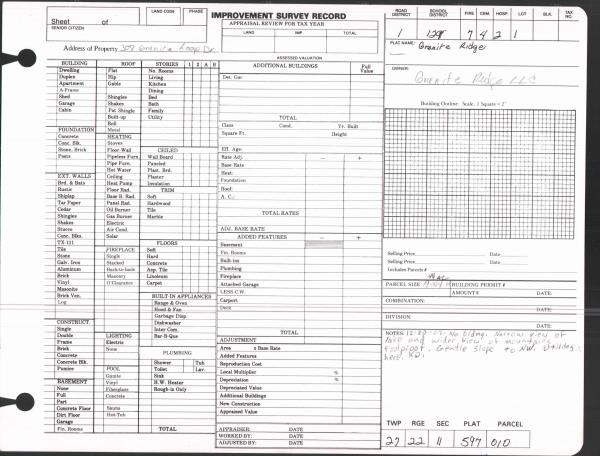 Sheet of
SENIOR CITIZEN
LAND CODE PHASE
IMPROVEMENT SURVEY RECORD
APPRAISAL REVIEW FOR TAX YEAR
LAND IMP. TOTAL
ASSESSED VALUATION
Address of Property 307 Granite Loop Dr.
ROAD DISTRICT SCHOOL DISTRICT FIRE CEM. HOSP. LOT BLK. TAX NO.
1 7 4 2 1
PLAT NAME:
Granite Ridge
OWNER:
Granite Ridge LLC
BUILDING ROOF STORIES 1 2 A B
Dwelling Flat No. Rooms
Duplex Hip Living
Apartment Gable Kitchen
A-Frame Dining
Shed Shingles Bed
Garage Shakes Bath
Cabin Pat Shingle Family
Built-up Utility
Roll
FOUNDATION Metal
Concrete HEATING
Conc. Blk. Stoves CEILED
Stone, Brick Floor-Wall Wall Board
Posts Pipeless Furn. Paneled
Pipe Furn. Plast. Brd.
Hot Water Plaster
EXT. WALLS Ceiling Insulation
Brd. & Bats Heat Pump
Rustic Floor Rad. TRIM
Shiplap Base B. Rad. Soft
Tar Paper Panel Rad. Hardwood
Cedar Oil Burner Tile
Shingles Gas Burner Marble
Shakes Electric
Stucco Air Cond.
Conc. Blks. Solar
TX-111 FLOORS
Tile FIREPLACE Soft
Stone Single Hard
Galv. Iron Stacked Concrete
Aluminum Back-to-back Asp. Tile
Brick Masonry Linoleum
Vinyl 0'Clearance Carpet
Masonite
Brick Ven. BUILT-IN APPLIANCES
Log Range & Oven
Hood & Fan
Garbage Disp.
CONSTRUCT. Dishwasher
Single Inter Com.
Double LIGHTING Bar-B-Que
Frame Electric
Brick None
Concrete PLUMBING
Concrete Blk. Shower Tub
Pumice POOL Toilet Lav.
Gunite Sink
BASEMENT Vinyl H.W. Heater
None Fiberglass Rough-in Only
Full Concrete
Part
Concrete Floor Sauna
Dirt Floor Hot-Tub
Garage
Fin. Rooms TOTAL
ADDITIONAL BUILDINGS Full Value
Det. Gar
TOTAL
Class Cond. Yr. Built
Square Ft. Height
Eff. Age:
Rate Adj. − +
Base Rate
Heat:
Foundation
Roof:
A. C.:
TOTAL RATES
ADJ. BASE RATE
ADDED FEATURES − +
Basement
Fin. Rooms
Built-ins
Plumbing
Fireplace
Attached Garage
LESS C.W.
Carport
Deck
TOTAL
ADJUSTMENT
Area x Base Rate
Added Features
Reproduction Cost
Local Multiplier %
Depreciation %
Depreciated Value
Additional Buildings
New Construction
Appraised Value
APPRAISER: DATE
WORKED BY: DATE
ADJUSTED BY: DATE
Building Outline: Scale, 1 Square = 2'
Selling Price Date
Selling Price Date
Includes Parcels #
PARCEL SIZE BUILDING PERMIT #
AMOUNT $ DATE:
COMBINATION:
DATE:
DIVISION:
DATE:
NOTES: No bldng. Narrow view of
lake and wider view of mountains
Gentle slope to NW. Utilities
here.
TWP RGE SEC PLAT PARCEL
27 22 11 597 010